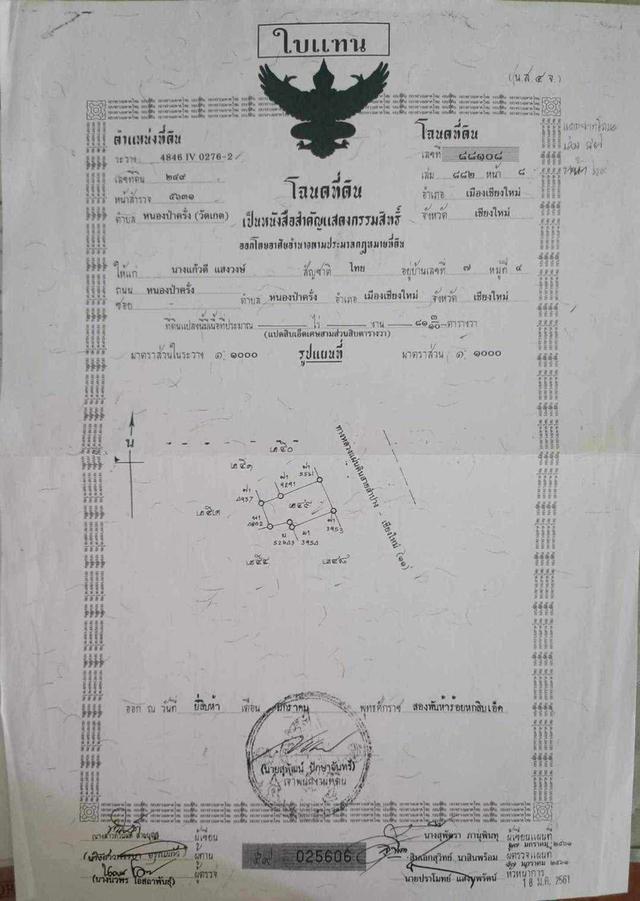 ใบแทน
(น.ส.๔ จ.)
ตำแหน่งที่ดิน
ระวาง 4846 IV 0276-2
เลขที่ดิน ๒๔๙
หน้าสำรวจ ๕๖๓๑
ตำบล หนองป่าครั่ง (วัดเกต)
โฉนดที่ดิน
เลขที่ ๘๘๑๐๘
เล่ม ๘๘๒ หน้า ๘
อำเภอ เมืองเชียงใหม่
จังหวัด เชียงใหม่
โฉนดที่ดิน
เป็นหนังสือสำคัญแสดงกรรมสิทธิ์
ออกโดยอาศัยอำนาจตามประมวลกฎหมายที่ดิน
ให้แก่ นางแก้วดี แสงวงษ์ สัญชาติ ไทย อยู่บ้านเลขที่ ๗ หมู่ที่ ๔
ถนน หนองป่าครั่ง
ซอย ตำบล หนองป่าครั่ง อำเภอ เมืองเชียงใหม่ จังหวัด เชียงใหม่
ที่ดินแปลงนี้มีเนื้อที่ประมาณ ไร่ งาน ๘๑ ๓/๑๐ ตารางวา
(แปดสิบเอ็ดเศษสามส่วนสิบตารางวา)
มาตราส่วนในระวาง ๑: ๑๐๐๐ รูปแผนที่ มาตราส่วน ๑: ๑๐๐๐
น
๒๕๐
๒๕๑
๒๕๓
๒๔๙
ทางหลวงแผ่นดินสายลำปาง - เชียงใหม่ (๑๑)
ออก ณ วันที่ ยี่สิบห้า เดือน มกราคม พุทธศักราช สองพันห้าร้อยหกสิบเอ็ด
(นายสุพัฒน์ ปักษาจันทร์)
เจ้าพนักงานที่ดิน
ผู้เขียน
ผู้ทาน
ผู้ตรวจ
025606
นางสุพัตวา ภานุพินทุ ผู้เขียนแผนที่
สิบเอกสุวิทย์ นาสินพร้อม ผู้ตรวจแผนที่
นายปราโมทย์ แสงบุพรัตน์ หัวหน้าการ
18 ม.ค. 2561